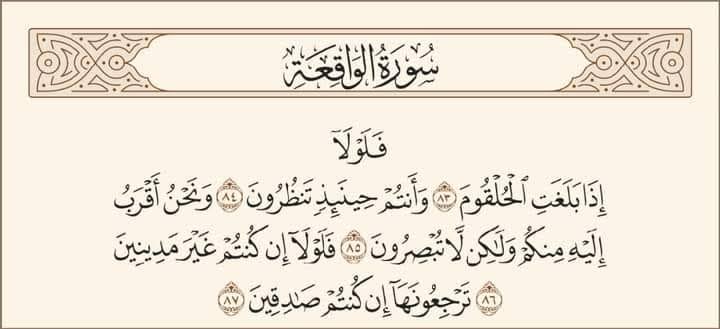 سُورَةُ الوَاقِعَةِ
فَلَوْلَآ
إِذَا بَلَغَتِ ٱلْحُلْقُومَ ٨٣ وَأَنتُمْ حِينَئِذٍ تَنظُرُونَ ٨٤ وَنَحْنُ أَقْرَبُ
إِلَيْهِ مِنكُمْ وَلَٰكِن لَّا تُبْصِرُونَ ٨٥ فَلَوْلَآ إِن كُنتُمْ غَيْرَ مَدِينِينَ
٨٦ تَرْجِعُونَهَآ إِن كُنتُمْ صَٰدِقِينَ ٨٧